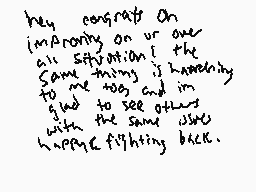 hey congrats on
improving on ur over
all situation! the
same thing is happening
to me too, and im
glad to see others
with the same issues
happy & fighting back.